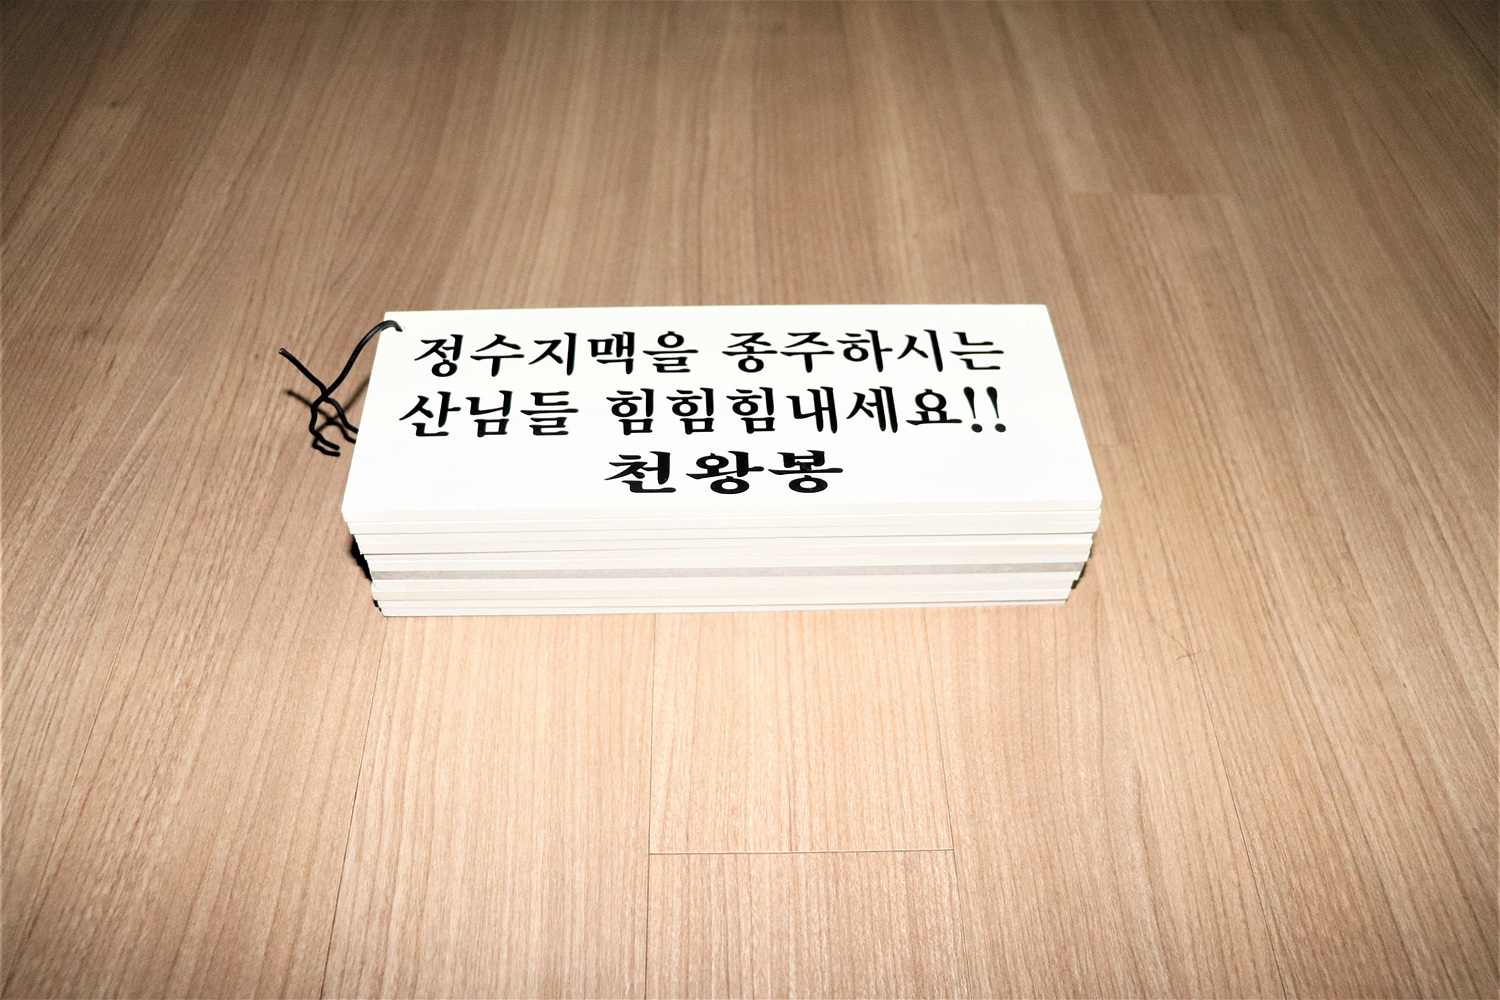 정수지맥을 종주하시는
산님들 힘힘힘내세요!!
천왕봉